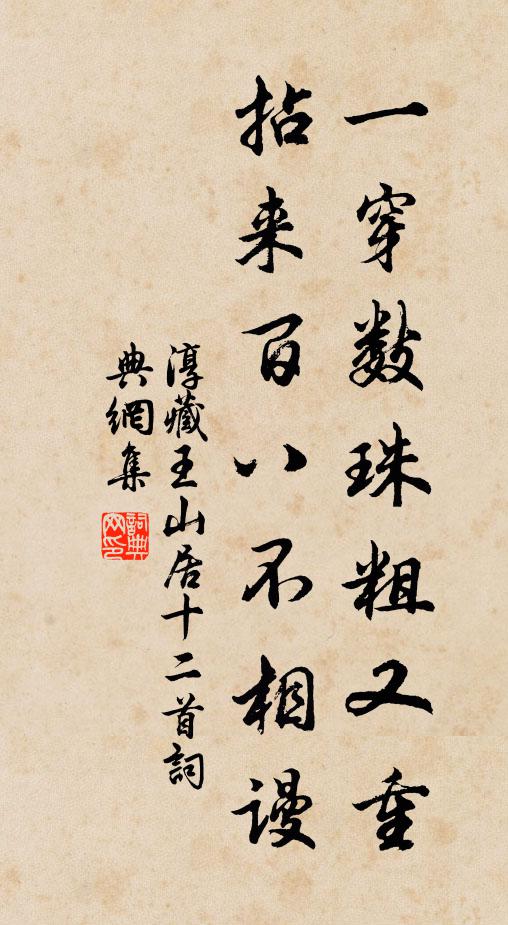 一穿数珠粗又重
拈来百八不相谩
淳藏王山居十二首詞
典網集
詞典
网印